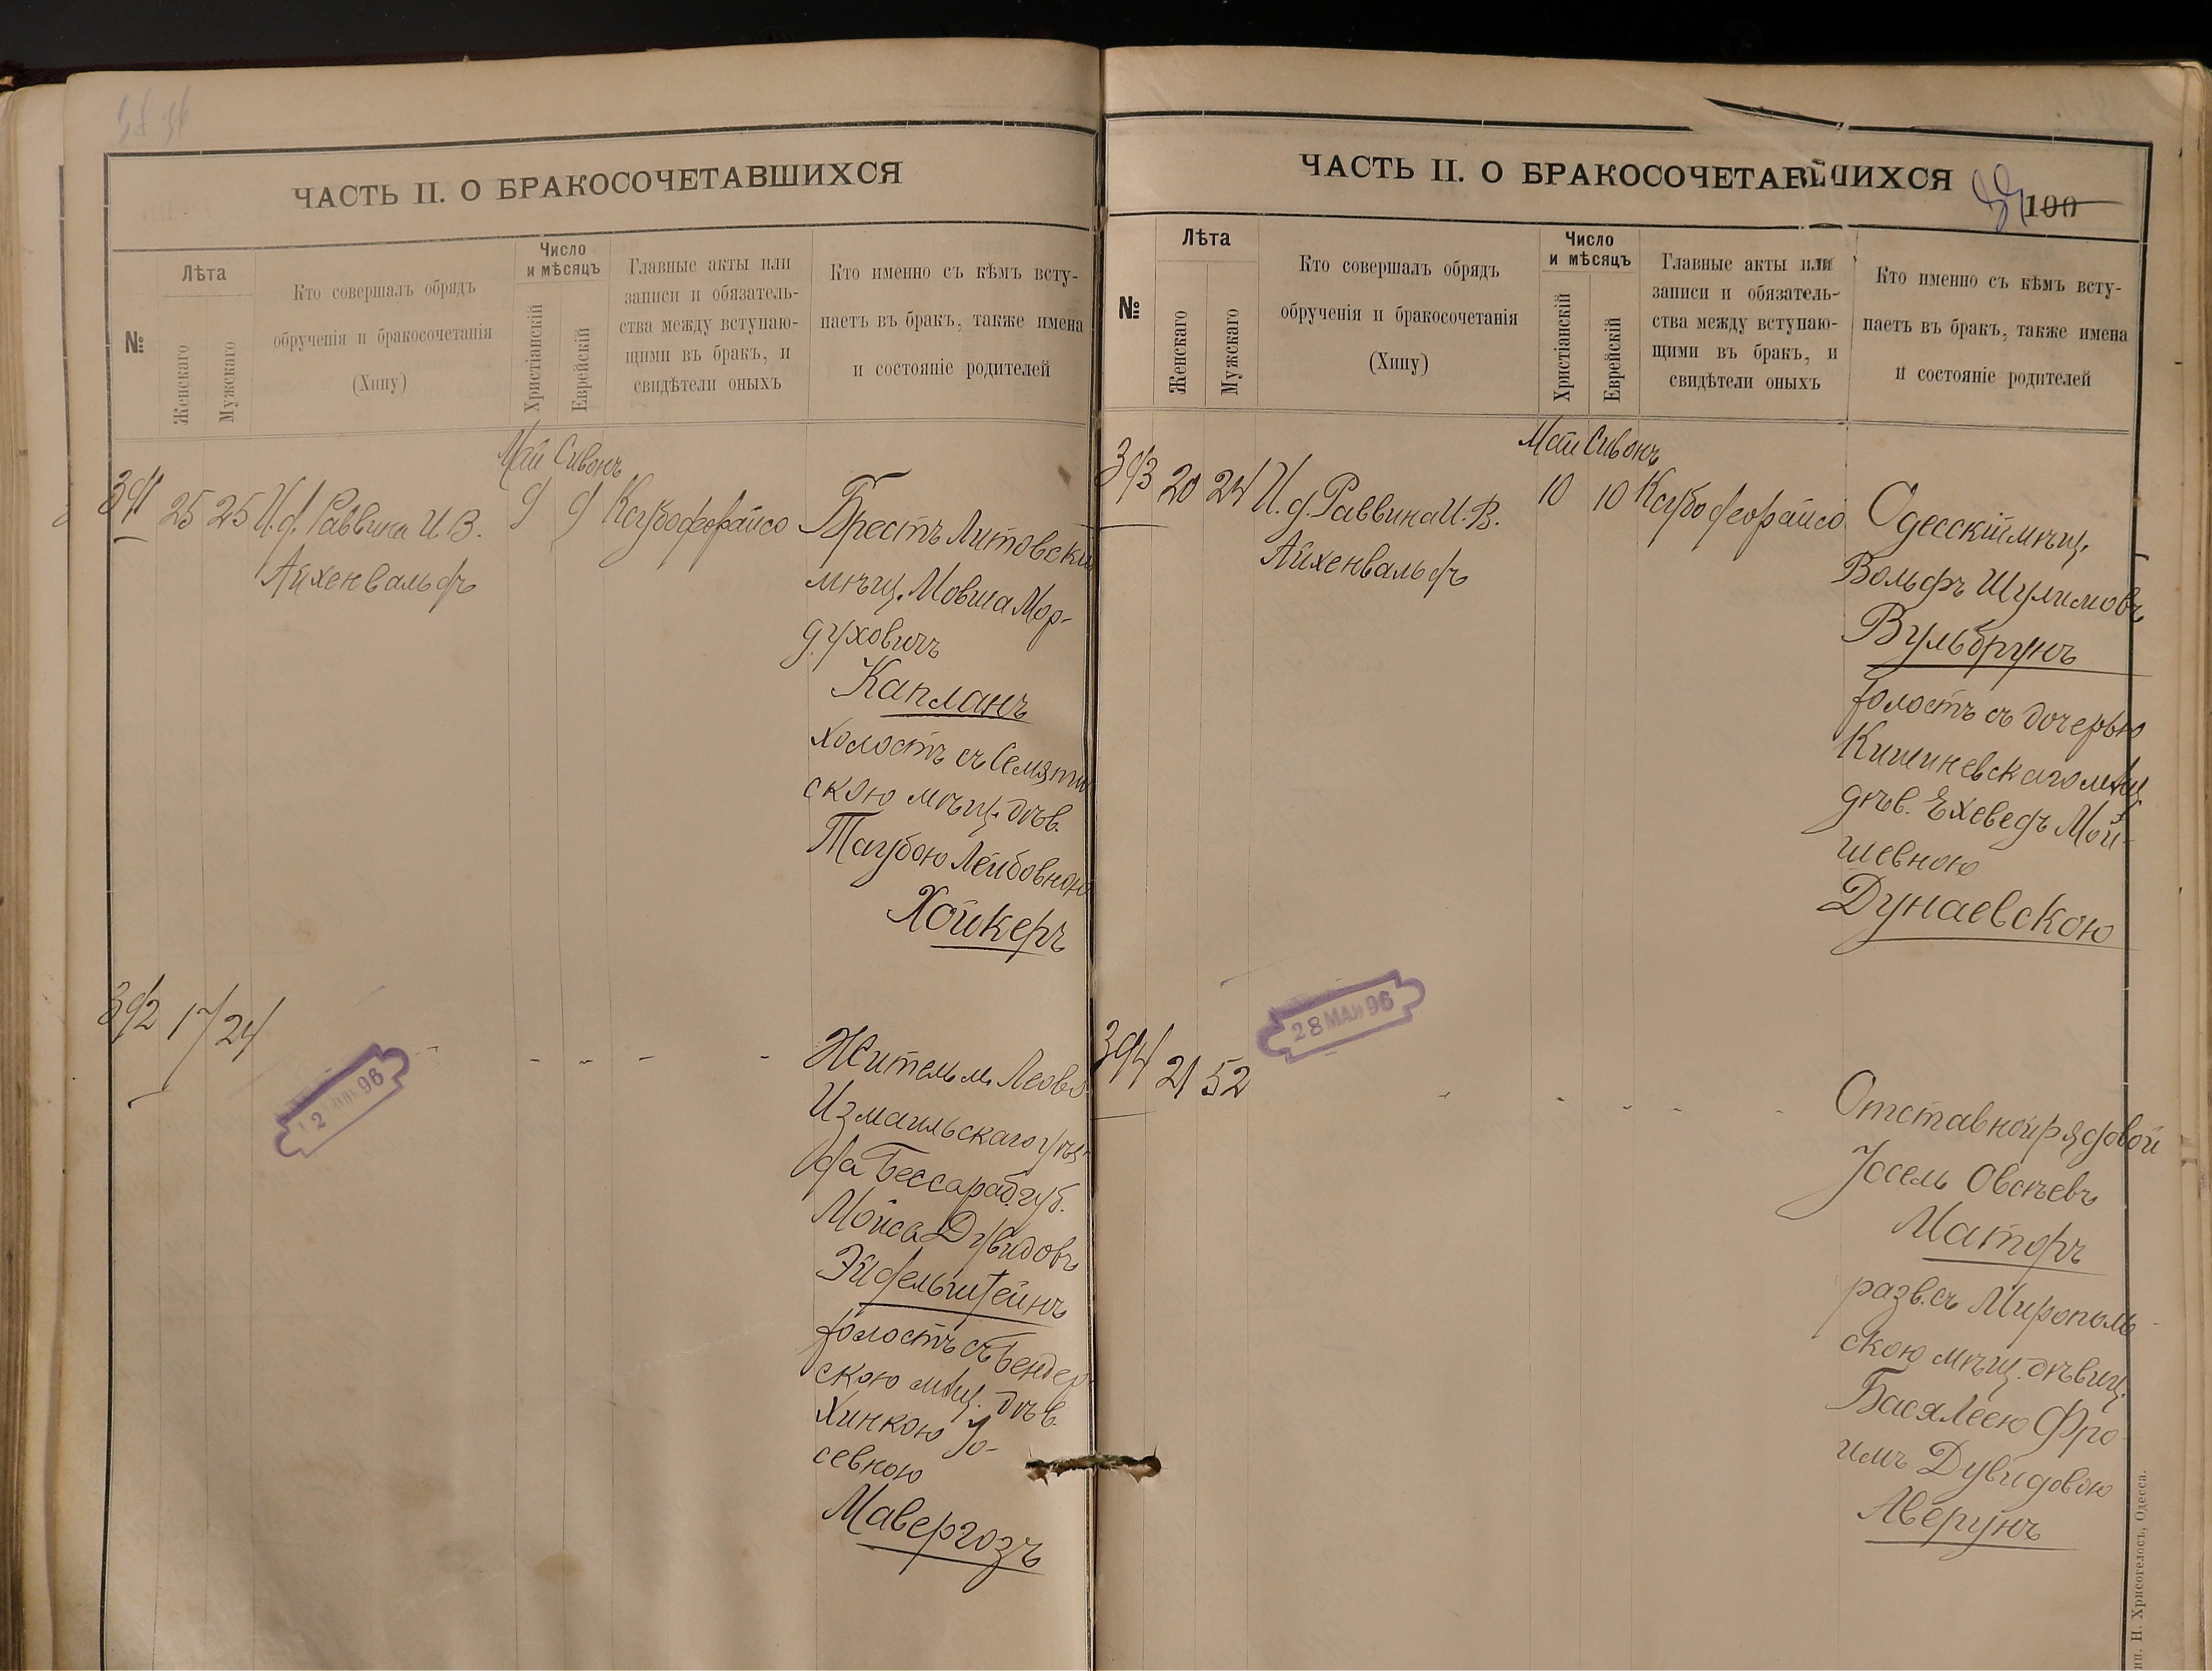 ЧАСТЬ II. О БРАКОСОЧЕТАВШИХСЯ
№
Лѣта
Женскаго
Мужскаго
Кто совершалъ обрядъ
обрученія и бракосочетанія
(Хипу)
Число
и мѣсяцъ
Христіанскій
Еврейскій
Главные акты или
записи и обязатель-
ства между вступаю-
щими въ бракъ, и
свидѣтели оныхъ
Кто именно съ кѣмъ всту-
паетъ въ бракъ, также имена
и состояніе родителей
Май Сивонъ
391 25 25 И. д. Раввина И. В. 9 9 Ксубо деорайсо
Айхенвальдъ
Брестъ Литовскій
мѣщ. Мовша Мор-
духовичъ
Капланъ
холостъ съ Семяти
скою мѣщ. дѣв.
Таубою Лейбовною
Хойкеръ
392 17 24 - - - - -
12 96
Житель м. Леово
Измаильскаго уѣз-
да Бессараб. губ.
Мойса Дувидовъ
Эйдельштейнъ
холостъ съ Бендер
скою мѣщ. дѣв.
Хинкою Іо-
севною
Мавергозъ
ЧАСТЬ II. О БРАКОСОЧЕТАВШИХСЯ
100
№
Лѣта
Женскаго
Мужскаго
Кто совершалъ обрядъ
обрученія и бракосочетанія
(Хипу)
Число
и мѣсяцъ
Христіанскій
Еврейскій
Главные акты или
записи и обязатель-
ства между вступаю-
щими въ бракъ, и
свидѣтели оныхъ
Кто именно съ кѣмъ всту-
паетъ въ бракъ, также имена
и состояніе родителей
Май Сивонъ
393 20 24 И. д. Раввина И. В. 10 10 Ксубо деорайсо
Айхенвальдъ
Одесскій мѣщ.
Вольфъ Шулимовъ
Вульбрунъ
холостъ съ дочерью
Кишиневскаго мѣщ
дѣв. Ехеведъ Мой-
шевною
Дунаевскою
28 МАЙ 96
394 21 52 - - - - -
Отставной рядовой
Іосель Овсѣевъ
Маторъ
разв. съ Мирополь-
скою мѣщ. дѣвиц.
Басялеею Фро
имъ Дувидовою
Аверунъ
Н. Хрисогелосъ, Одесса.